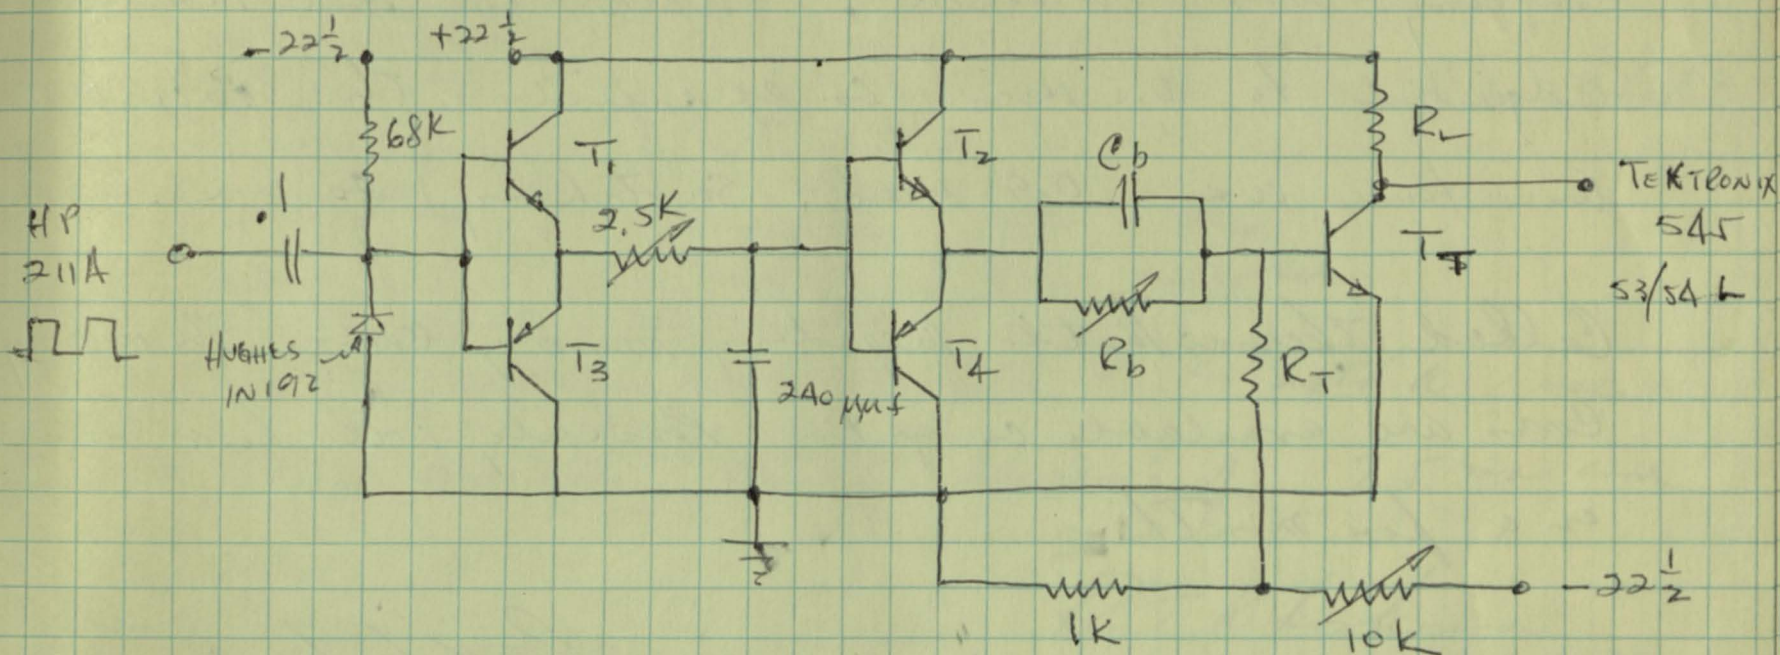 -22 1/2
+22 1/2
68K
T1
T2
Cb
RL
TEKTRONIX
545
53/54 L
HP
211A
.1
2.5K
TT
HUGHES
1N192
T3
240 μμf
T4
Rb
RT
1K
10K
-22 1/2